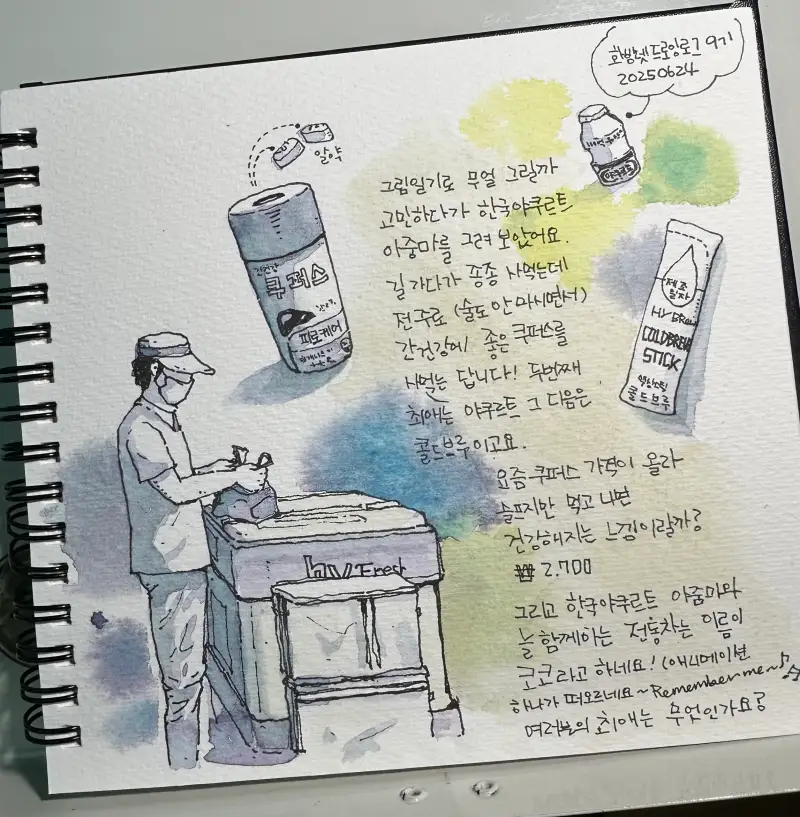 화방넷 드로잉로그 9기
20250624
알약
그림일기로 무얼 그릴까
고민하다가 한국야쿠르트
아줌마를 그려 보았어요.
길 가다가 종종 사먹는데
전 주로 (술도 안 마시면서)
간건강에 좋은 쿠퍼스를
사먹는 답니다! 두번째
최애는 야쿠르트 그 다음은
콜드브루 이고요.
요즘 쿠퍼스 가격이 올라
슬프지만 먹고 나면
건강해지는 느낌이랄까?
₩ 2.700
그리고 한국야쿠르트 아줌마와
늘 함께하는 전동차는 이름이
코코라고 하네요! (애니메이션
하나가 떠오르네요~ Remember me~♪
여러분의 최애는 무언인가요?
간건강
쿠퍼스
피로케어
야쿠르트
제조
일자
hy Brew
COLDBREW
STICK
액상스틱
콜드브루
hy Fresh